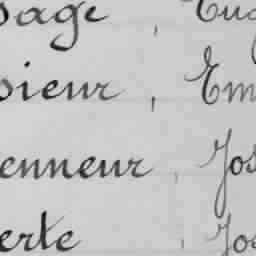 sage, Eug
sieur, Em
enneur, Jos
erte, Jos